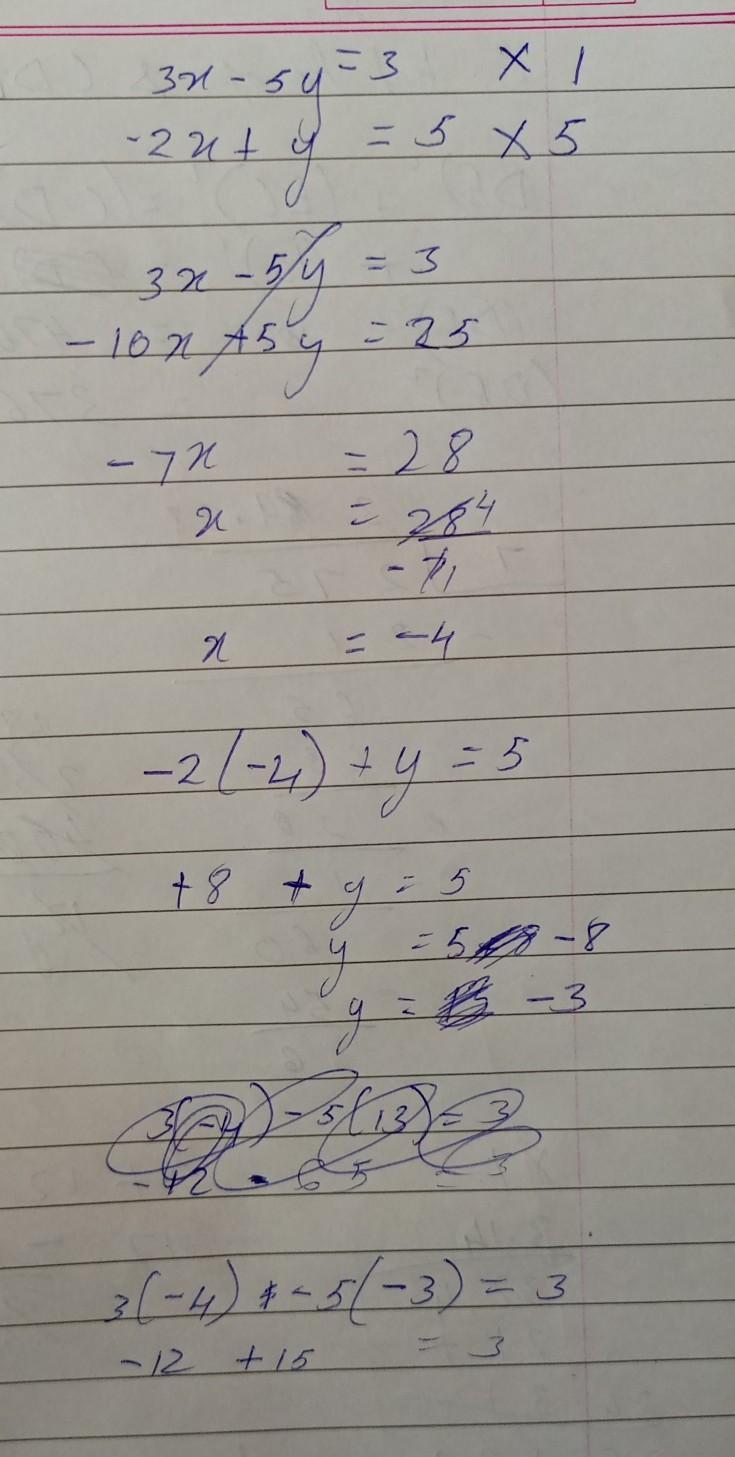 3x - 5y = 3 × 1
-2x + y = 5 × 5
3x - 5y = 3
-10x + 5y = 25
-7x = 28
x = 28 4
-7 1
x = -4
-2(-4) + y = 5
+8 + y = 5
y = 5 -8
y = -3
3(-4) - 5(13) = 3
-12 - 65 = 3
3(-4) - 5(-3) = 3
-12 +15 = 3